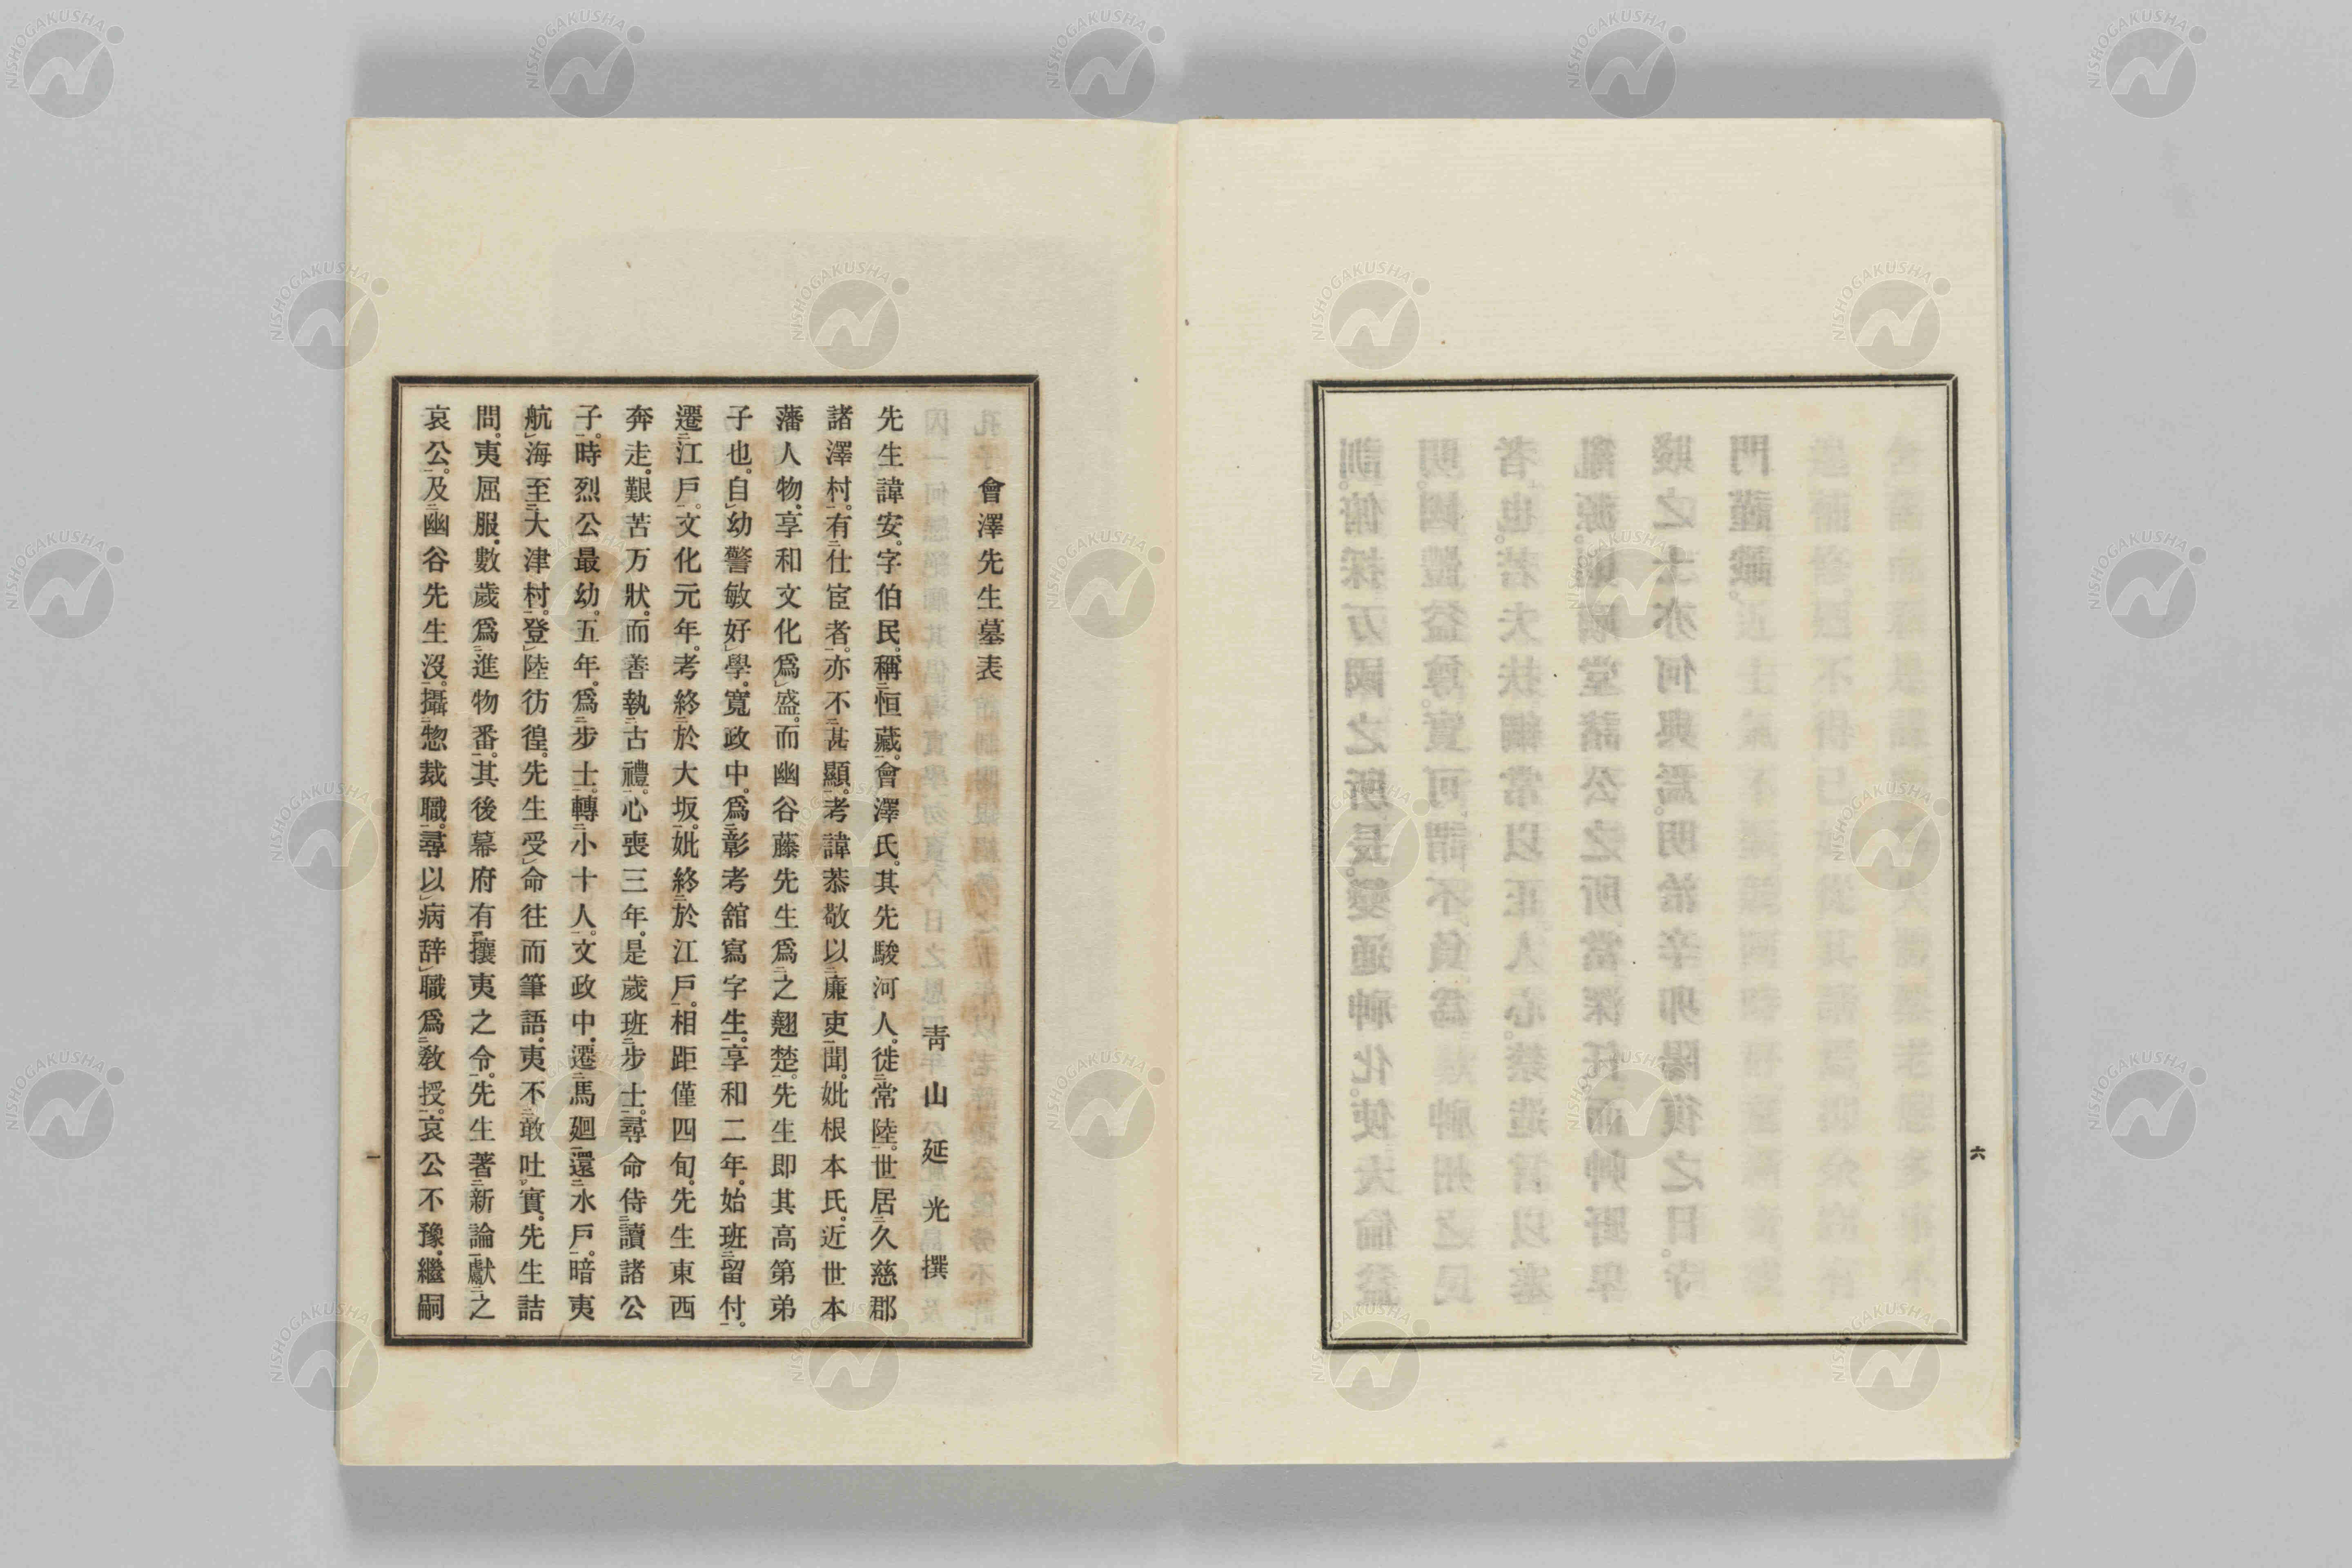 六
會澤先生墓表
靑山延光撰
先生諱安。字伯民。稱恒藏。會澤氏。其先駿河人。徙常陸。世居久慈郡
諸澤村。有仕宦者。亦不甚顯。考諱恭敬以廉吏聞。妣根本氏。近世本
藩人物。享和文化爲盛。而幽谷藤先生爲之翹楚。先生卽其高第弟
子也。自幼警敏好學。寬政中。爲彰考舘寫字生。享和二年。始班留付。
遷江戶。文化元年。考終於大坂。妣終於江戶。相距僅四旬。先生東西
奔走。艱苦万狀。而善執古禮。心喪三年。是歲班步士。尋命侍讀諸公
子。時烈公最幼。五年。爲步士。轉小十人。文政中。遷馬廻。還水戶。暗夷
航海至大津村。登陸彷徨。先生受命往而筆語。夷不敢吐實。先生詰
問。夷屈服。數歲爲進物番。其後幕府有攘夷之令。先生著新論獻之
哀公。及幽谷先生沒。攝惣裁職。尋以病辞職爲敎授。哀公不豫。繼嗣
一
NISHOGAKUSHA